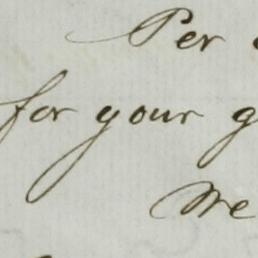 Per
for your
We